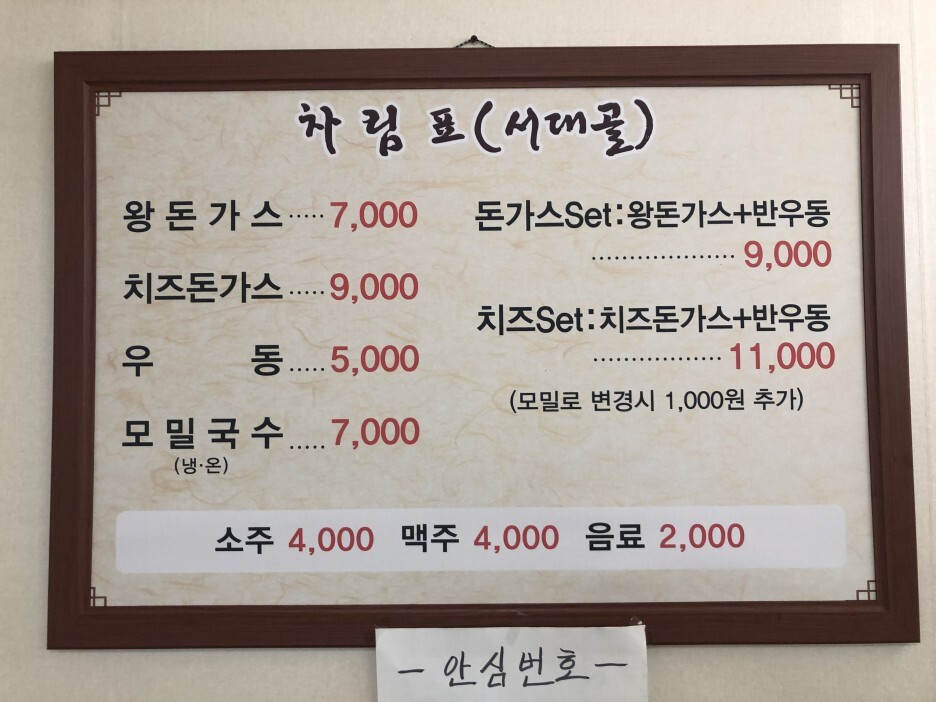 차림표(서대골)
왕돈가스.....7,000
치즈돈가스.....9,000
우동.....5,000
모밀국수.....7,000
(냉·온)
돈가스Set:왕돈가스+반우동
....................9,000
치즈Set:치즈돈가스+반우동
..................11,000
(모밀로 변경시 1,000원 추가)
소주 4,000 맥주 4,000 음료 2,000
- 안심번호 -